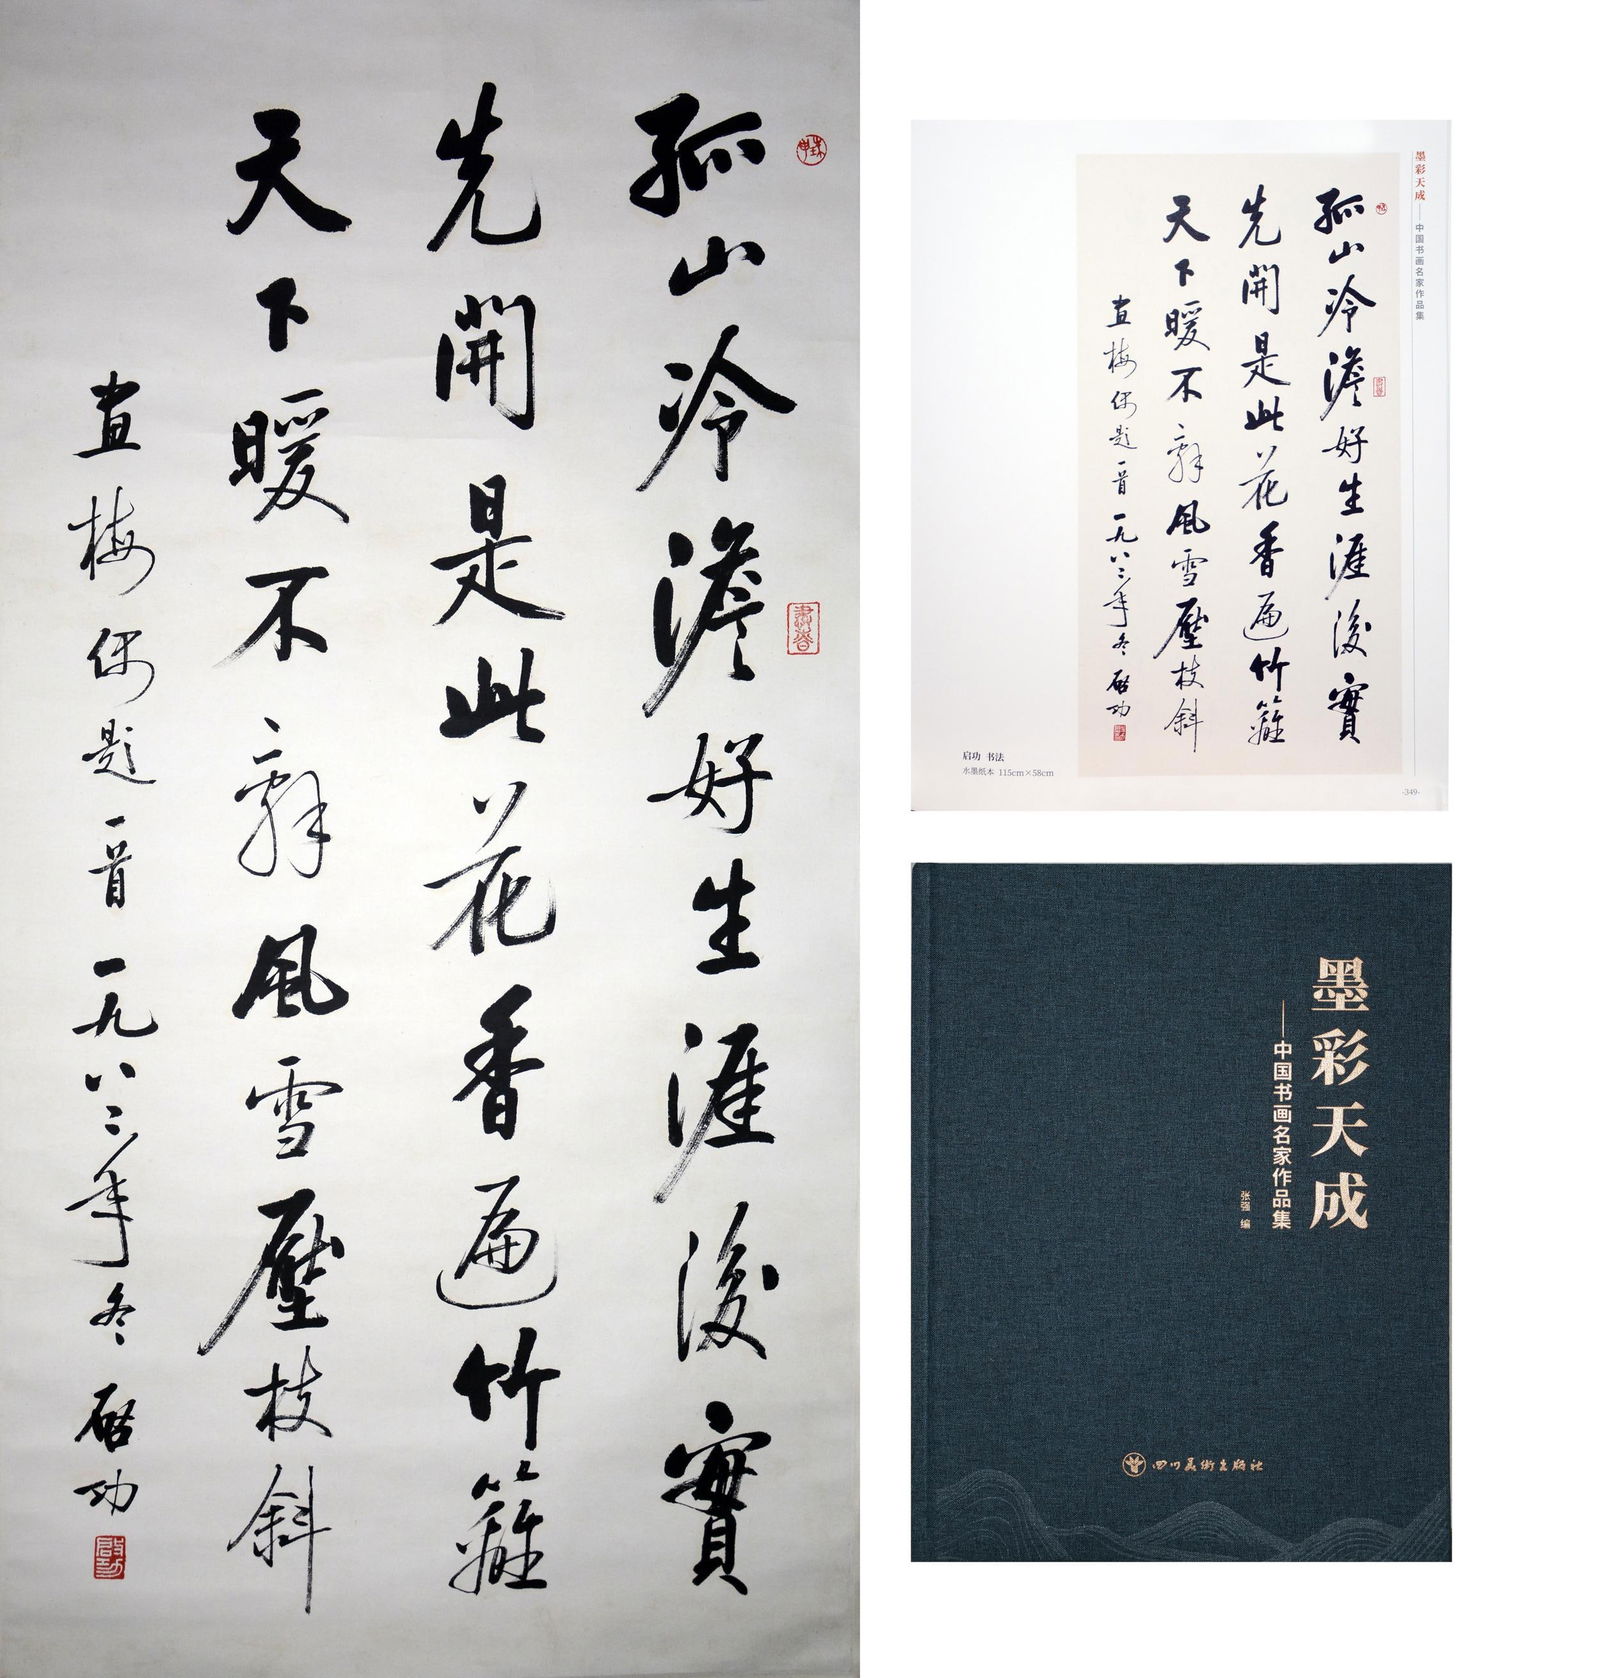 孤山冷澹好生涯後實
先開是此花香遍竹籬
天下暖不辭風雪壓枝斜
畫梅偶題一首一九八三年冬 啓功
啓功
墨彩天成——中国书画名家作品集
孤山冷澹好生涯後實
先開是此花香遍竹籬
天下暖不辭風雪壓枝斜
畫梅偶題一首一九八三年冬 啓功
启功 书法
水墨纸本 115cm×58cm
·349·
墨彩天成
——中国书画名家作品集
张强 编
四川美術出版社